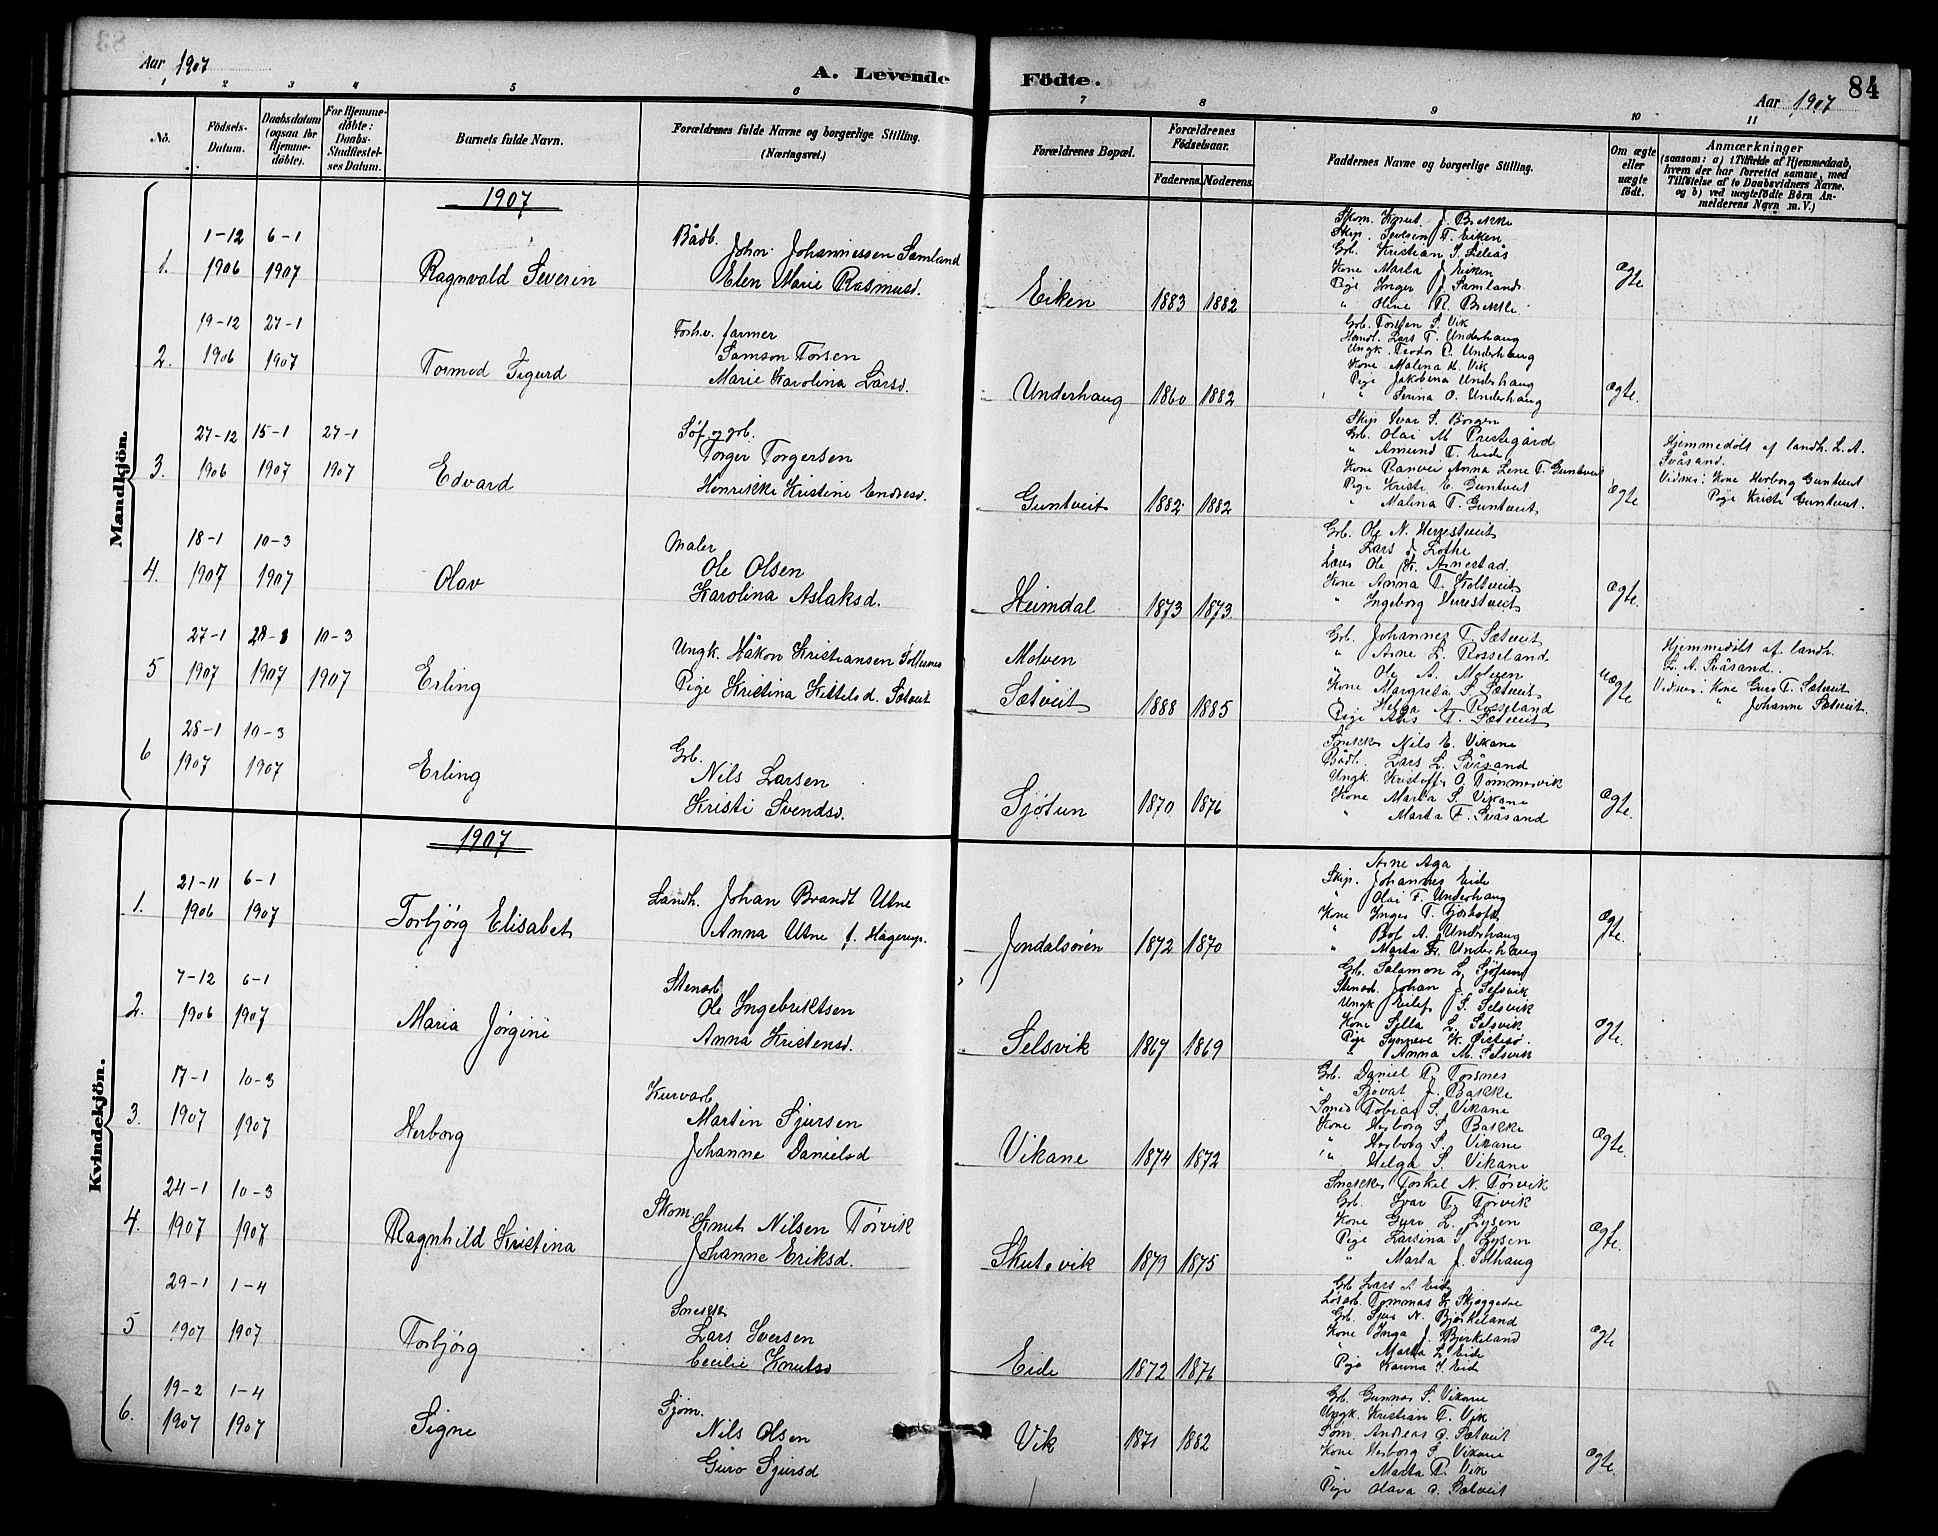 Aar 1907
A. Levende Födte.
84
Aar 1907
1 2 3 4 5 6 7 8 9 10 11
No.
Födsels-Datum.
Daabsdatum (ogsaa for Hjemme-döbte).
For Hjemme-döbte: Daabs-Stadfæstel-ses Datum.
Barnets fulde Navn.
Forældrenes fulde Navne og borgerlige Stilling.
(Næringsvei.)
Forældrenes Bopæl.
Forældrenes Födselsaar.
Faderens. Moderens.
Faddernes Navne og borgerlige Stilling.
Om ægte eller uægte födt.
Anmærkninger
(saasom: a) i Tilfælde af Hjemmedaab,
hvem der har forrettet samme, med
Tilföielse af to Daabsvidners Navne.
og b) ved uægtefödte Börn An-
melderens Navn m. V.)
Mandkjön.
1907
1.
1-12 6-1
1906 1907
Ragnvald Severin
Bådb.
John Johannessen Samland
Elen Marie Rasmusd.
Eiken 1883 1882
Skom. Knut J. Bakke
Skip. T. Eiken
Gb. Kristian S.
Kone Marta J. Eiken
Pige Inger J. Samland
" Oline R. Bakke
Ægte
2.
19-12 27-1
1906 1907
Tormod Sigurd
Forhv. farmer
Samson Torsen
Marie Karolina Larsd.
Underhaug 1860 1882
Gb. Torsten S. Vik
Handl. Lars T. Underhaug
Ungk. Teodor O. Underhaug
Kone Malina K. Vik
Pige Jakobina Underhaug
" O. Underhaug
Ægte.
3.
27-12 15-1 27-1
1906 1907 1907
Edvard
Söf. og gb.
Torger Torgersen
Henrikke Kristine Endresd.
Guntveit 1882 1882
Skip Ivar S. Borgen
Gb. Olai M. Prestegård
" Amund T. Eide
Kone Ranvei Anna Lene T. Guntveit
Pige Kristi E. Guntveit
" Malina T. Guntveit
Ægte
Hjemmedöbt af landh. L. A.
Svåsand.
Vidner: Kone Herborg Guntveit
Pige Kristi Guntveit.
4.
18-1 10-3
1907 1907
Olav
Maler
Ole Olsen
Karolina Aslaksd.
Heimdal 1873 1873.
Gb. Ole N. Herrestveit
" Lars J. Lothe
Lærer Ole K. Arnestad.
Kone Anna T. Koltveit
" Ingeborg Herrestveit
Ægte.
5
27-1 28-1 10-3
1907 1907 1907
Erling
Ungk. Håkon Kristiansen
Pige Kristina Kittelsd. Sætveit
Molven
Sætveit 1888 1885
Gb. Johannes T. Sætveit
" Arne L. Rosseland
" Ole A. Molven
Kone Margreta S. Sætveit
" Helga A. Rosseland
Pige T. Sætveit
uægte
Hjemmedöbt af landh.
L. A. Svåsand.
Vidner: Kone Guro T. Sætveit
" Johanne Sætveit.
6
28-1 10-3
1907 1907
Erling
Gb.
Nils Larsen
Kristi Svendsd.
Sjötun 1870 1876
Snekker Nils E. Vikane
Bådb. Lars L. Svåsand
Ungk. Kristoffer O. Tömmervik
Kone Marta S. Vikane
" Marta F. Svåsand
Ægte.
Kvindekjön.
1907
1.
21-11 6-1
1906 1907
Torbjörg Elisabet
Landh. Johan Brandt Utne
Anna Utne f. Hagerup.
Jondalsören 1872 1870
Arne Aga
Skip. Johannes Eide
" Olai F. Underhaug
Kone Inger T.
" A. Underhaug
" Marta Underhaug
Ægte.
2.
7-12 6-1
1906 1907
Maria Jörgine
Stenarb
Ole Ingebriktsen
Anna Kristensd.
Selsvik 1867 1869
Gb. Salamon L. Sjötun
Stenarb. Johan J. Selsvik
Ungk Eilef S. Selsvik
Kone Sella L. Selsvik
Pige Synneve K.
" Anna M. Selsvik
Ægte.
3.
17-1 10-3
1907 1907
Herborg
Kurvarb
Martin Sjursen
Johanne Danielsd
Vikane 1874 1872
Gb. Daniel P. Torsnes
" Sjovat J. Bakke
Smed Tobias S. Vikane
Kone Herborg S Bakke
" Herborg S. Vikane
" Helga S. Vikane
Ægte.
4.
24-1 10-3
1907 1907
Ragnhild Kristina
Skom.
Knut Nilsen Törvik
Johanne Eriksd.
Skutevik 1879 1875
Snekker Torkel N. Törvik
Gb. Ivar T. Törvik
Kone Guro L. Lysen
Pige Larsina S. Lysen
" Marta J. Solhaug
Ægte.
5
29-1 1-4
1907 1907
Torbjörg
Snekk
Lars Iversen
Cecilie Knutsd
Eide 1872 1876
Gb Lars A Eide
Tommas L. Skjeggedal
Gb. N. Bjerkeland
Kone Inga J. Bjerkeland
" Marta L. Eide
Pige Karina I. Eide
Ægte
6.
19-2 1-4
1907 1907
Signe
Sjöm.
Nils Olsen
Guro Sjursd
Vik 1871 1882
Gb. Gunnar S. Vikane
Ungk. Kristian T. Vik
Söm. Andreas O. Sætveit
Kone Herborg S. Vikane
" Marta T. Vik
Pige Olava O. Sætveit
Ægte.